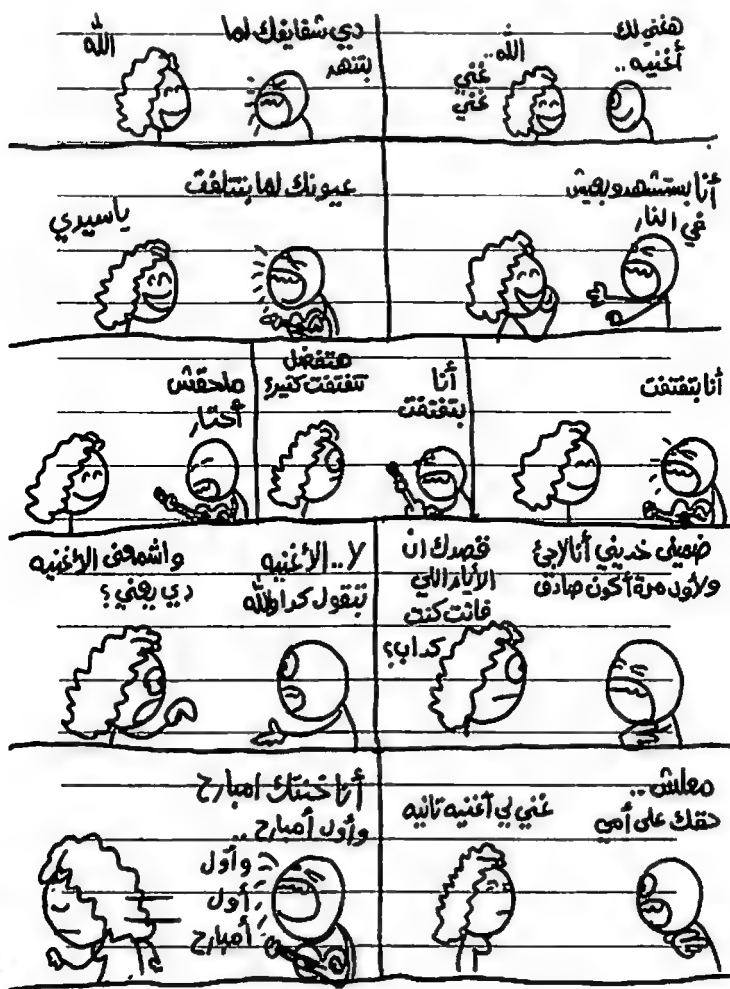 هغني لك
أغنيه..
الله..
غني
غني
دي شفايفك لما
بتنهد
الله
أنا بستشهد وبعيش
في النار
عيونك لما بتتلفت
ياسيدي
أنا بتفتفت
أنا
بتفتفت
هتفضل
تتفتفت كتير؟
ملحقش
أختار
ضميني خديني أنا لاجئ
ولأول مرة أكون صادق
قصدك ان
الأيام اللي
فاتت كنت
كداب؟
لا.. الأغنيه
بتقول كدا والله
واشمعنى الأغنيه
دي يعني؟
معلش..
حقك على أمي
غني لي أغنيه تانيه
أنا خنتك امبارح
وأول أمبارح..
وأول
أول
أمبارح